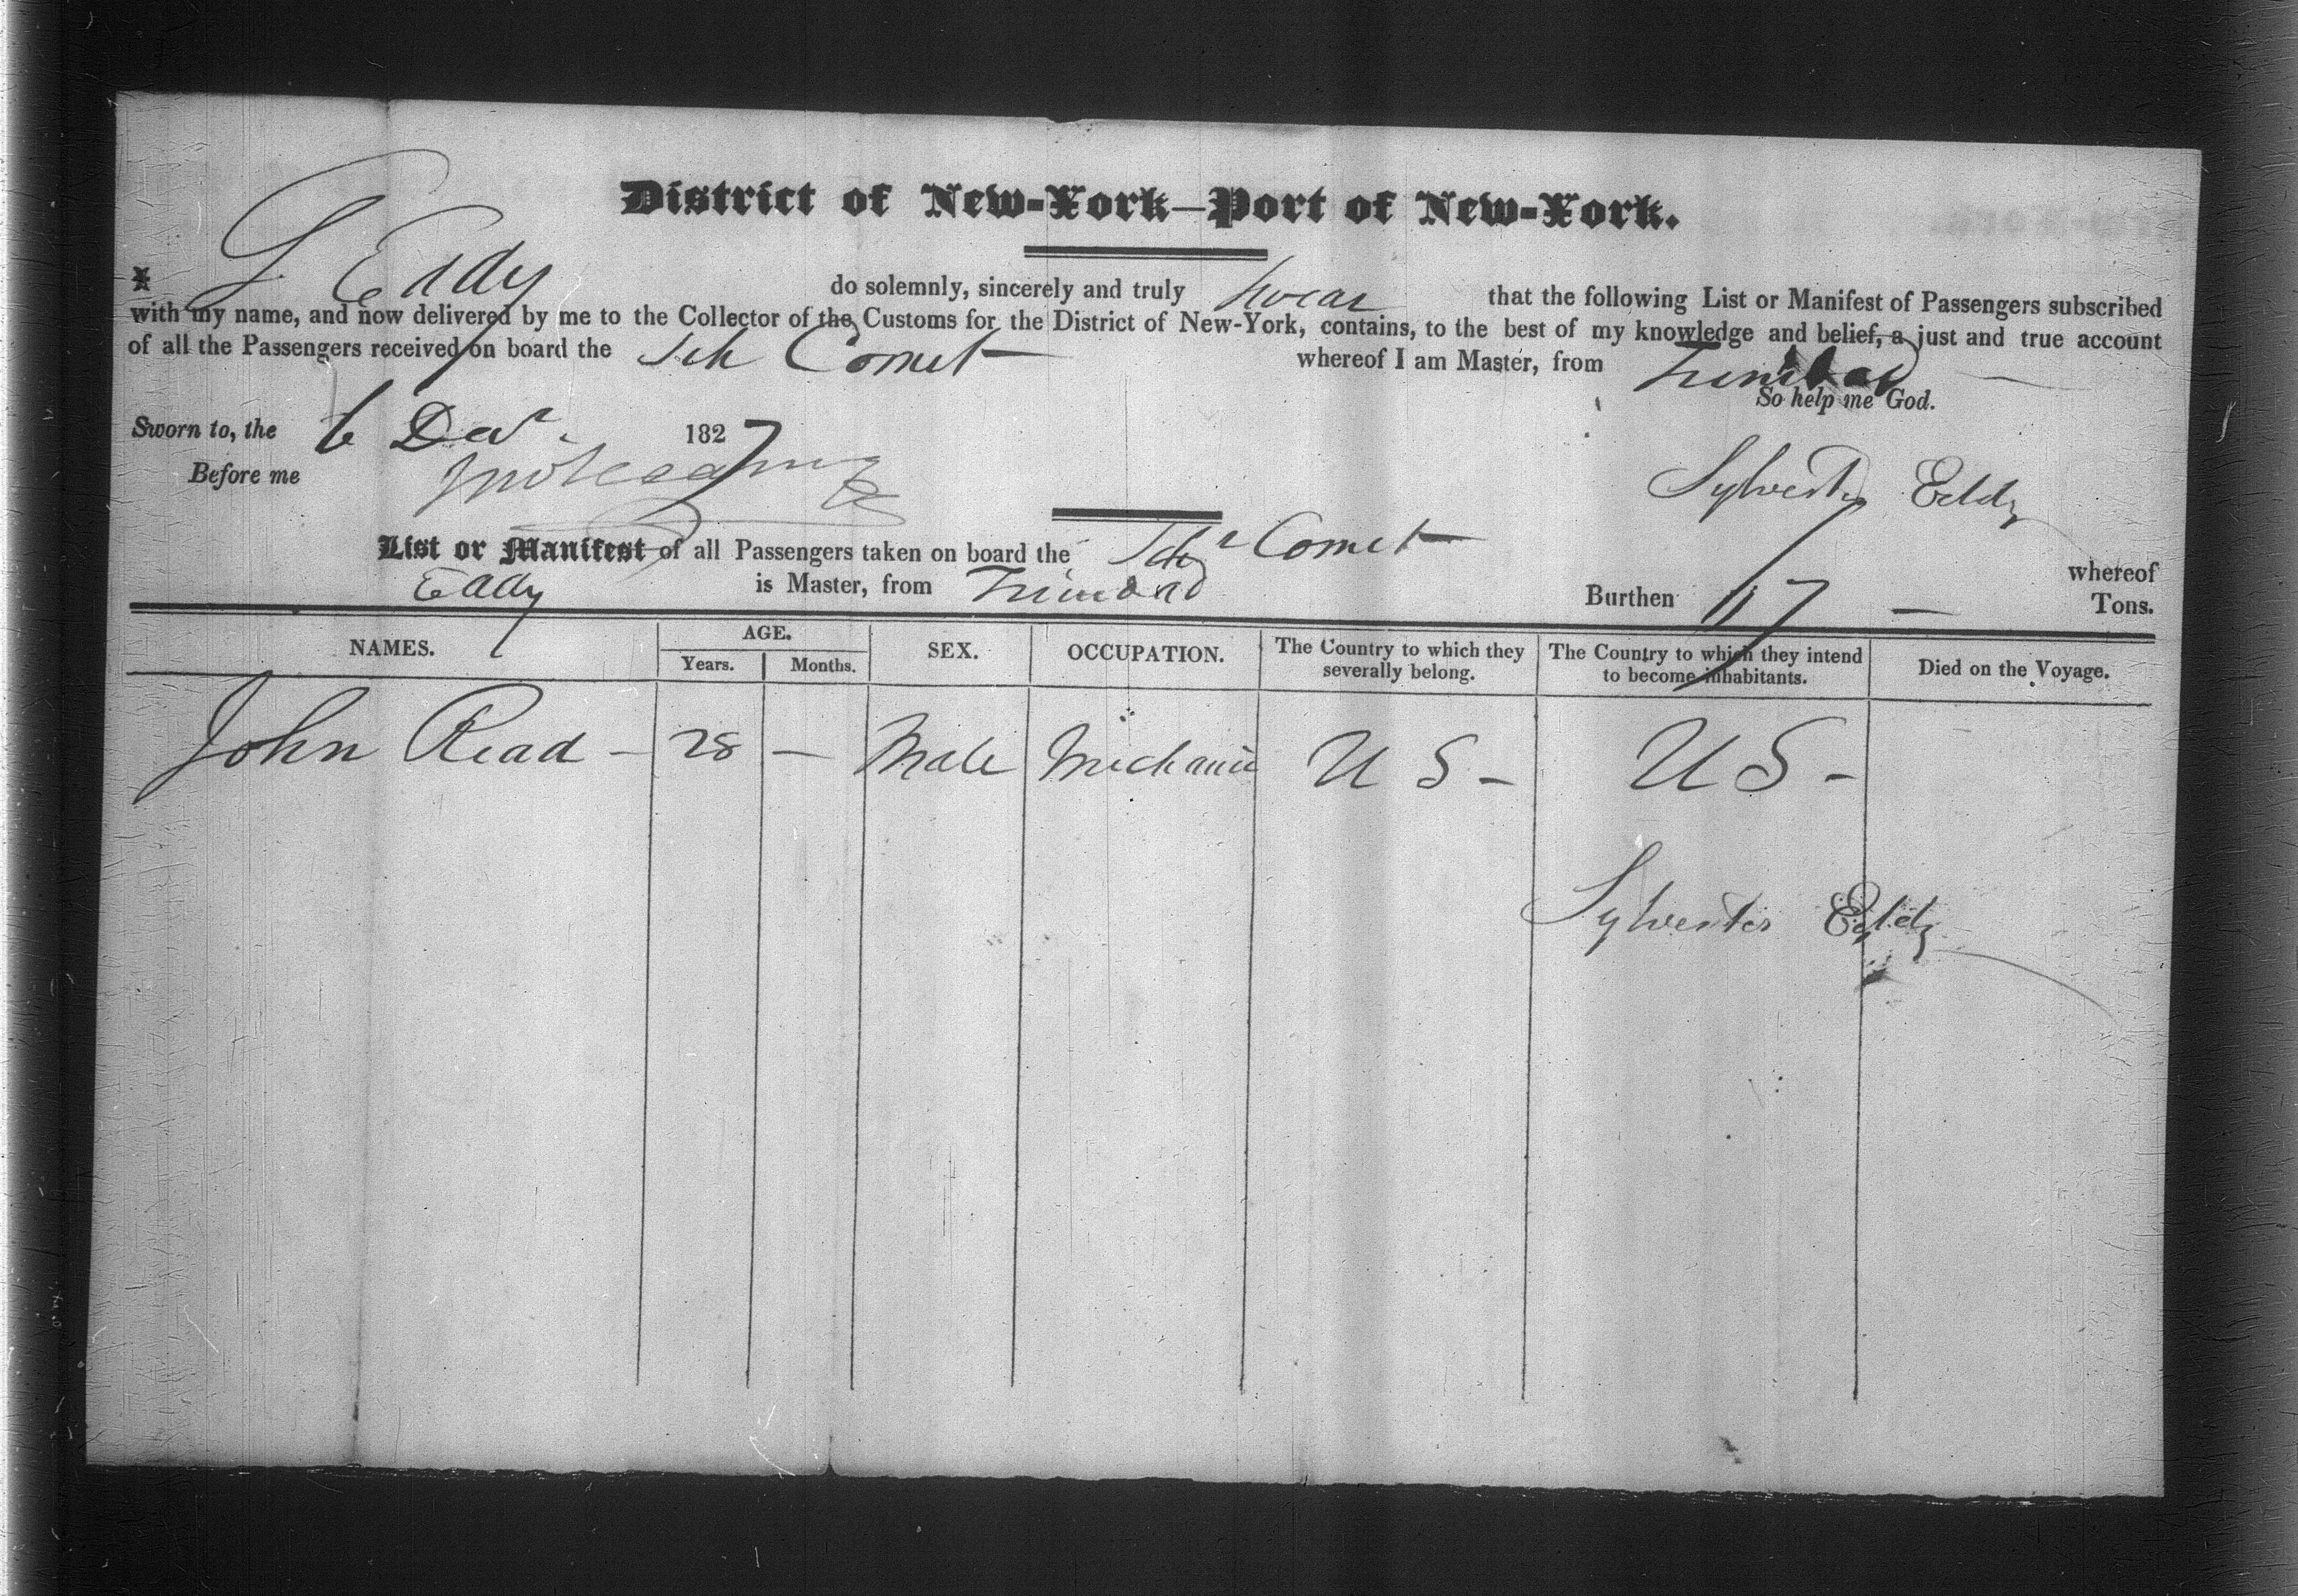 District of New-York—Port of New-York.
I, S Eddy do solemnly, sincerely and truly swear that the following List or Manifest of Passengers subscribed
with my name, and now delivered by me to the Collector of the Customs for the District of New-York, contains, to the best of my knowledge and belief, a just and true account
of all the Passengers received on board the Sch Comet whereof I am Master, from Trinidad
So help me God.
Sworn to, the 6 Decr. 1827
Before me
Sylvester Eddy
List or Manifest of all Passengers taken on board the Schr Comet whereof
Eddy is Master, from Trinidad Burthen 117 Tons.
NAMES. AGE. Years. Months. SEX. OCCUPATION. The Country to which they severally belong. The Country to which they intend to become inhabitants. Died on the Voyage.
John Read — 28 — Male Mechanic U S — U S —
Sylvester Eddy